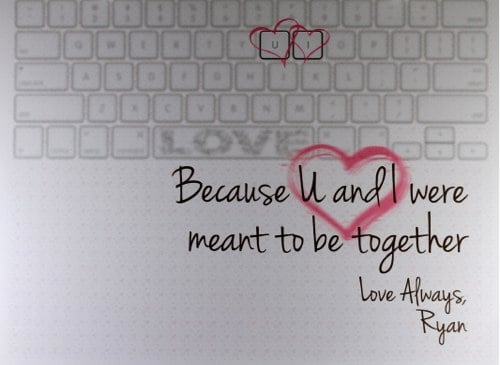 Q W E R T Y U I O P
A S D F G H J K L
Z X C V B N M
LOVE
Because U and I were
meant to be together
Love Always,
Ryan